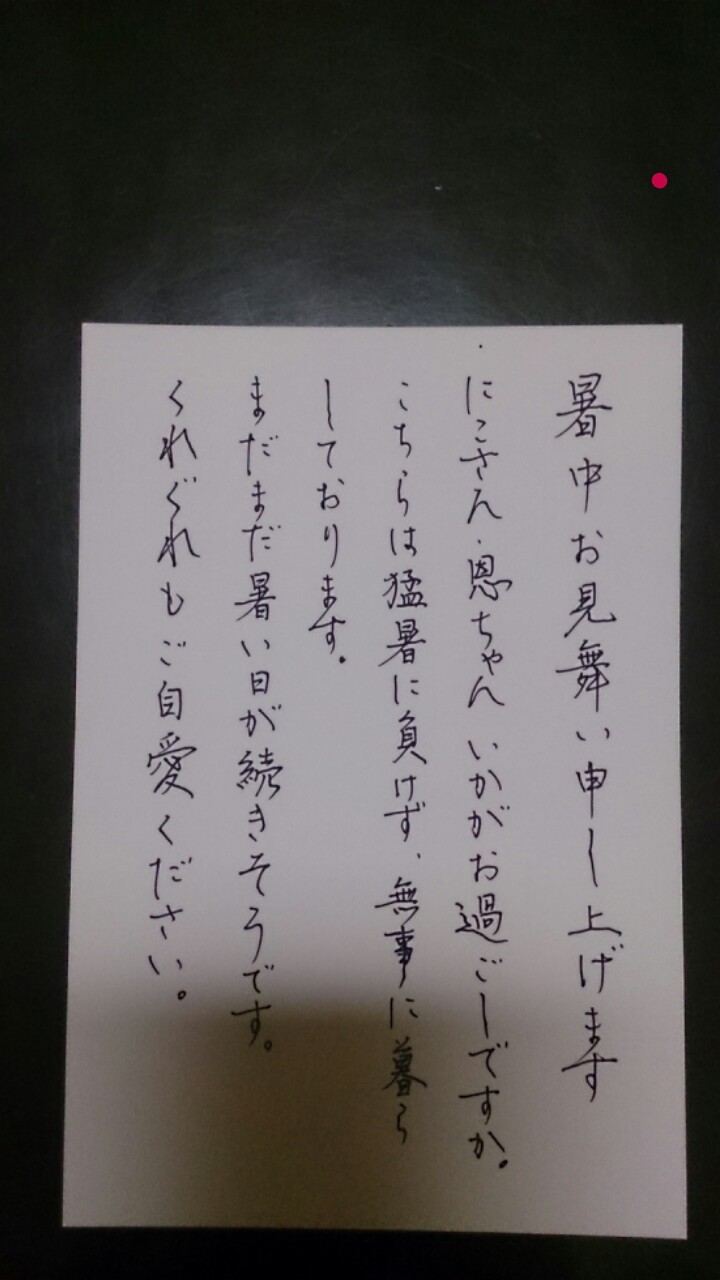 暑中お見舞い申し上げます
にこさん・恩ちゃんいかがお過ごしですか。
こちらは猛暑に負けず、無事に暮ら
しております。
まだまだ暑い日が続きそうです。
くれぐれもご自愛ください。